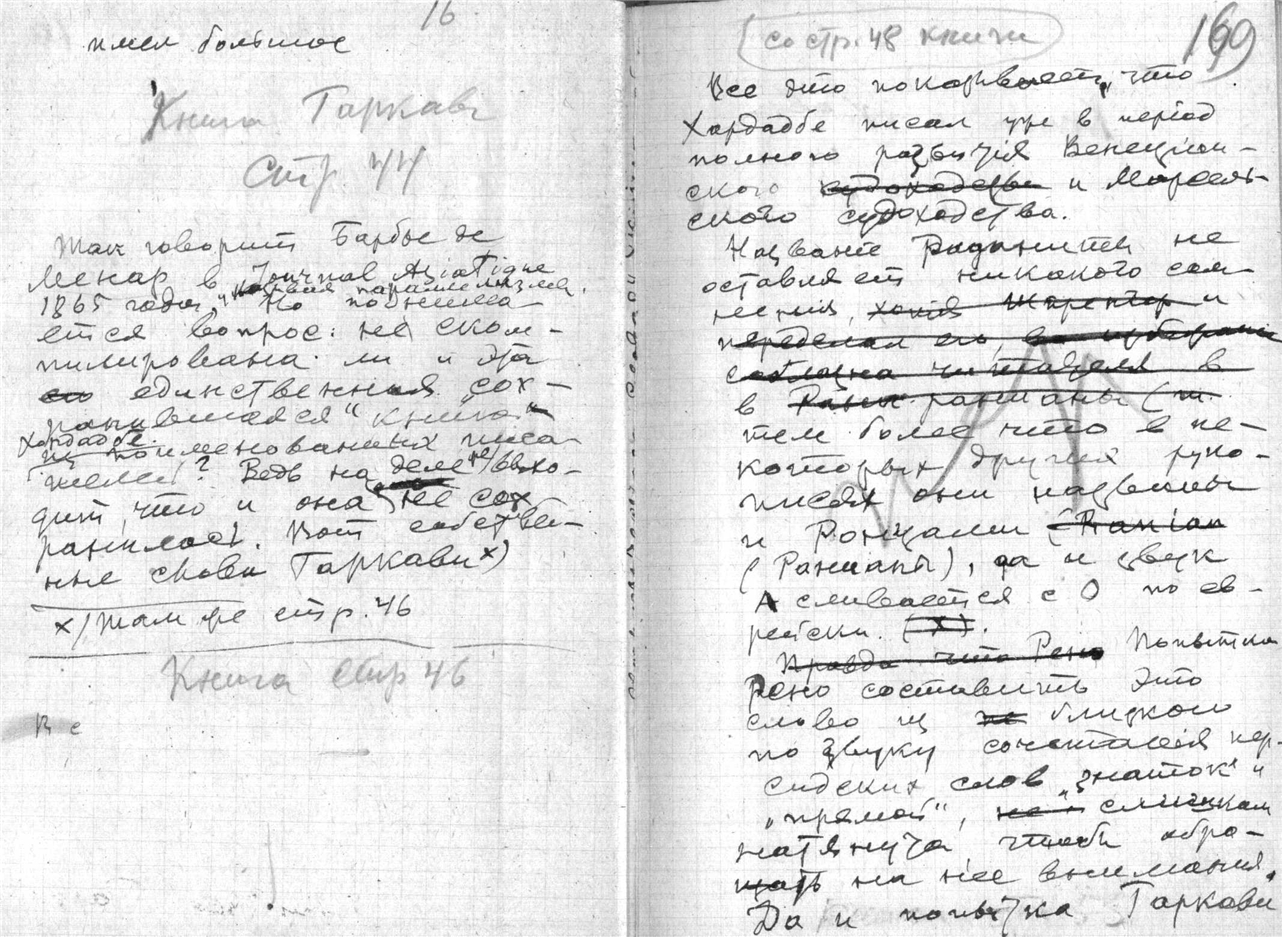 16
имел большое
Книга Гаркави
Стр. 44
Так говорит Барбье де
Менар в Journal Asiatique
1865 года, "
Но поднима-
ется вопрос: не ском-
пилирована ли и эта
единственная сох-
ранившаяся "книга"
Хордадбе
из поименованных писа-
телей? Ведь на деле выхо-
дит, что и она не сох
ранилась. Вот собствен-
ные слова Гаркави х)
х) Там же стр. 46
Книга Стр 46
Вс
[со стр. 48 книги
199
Все это показывает, что
Хордадбе писал уже в период
полного развития Венециан-
ского судоходства и Марсель-
ского судоходства.
Название Раданиты не
оставляет никакого сом-
нения, хотя и
переделал его,
соблазна читателя в
в Рана ранианы (т.
тем более что в не-
которых других руко-
писях они названы
и Ронцами (Ranian
(Ранианы), да и звук
А сливается с О по ев-
рейски. (х).
Правда что Рено Попытка
Рено составить это
слово из не близкого
по звуку сочетания пер-
сидских слов "знаток" и
"прямой", слишком
натянута чтоб обра-
щать на нее внимания.
Да и попытка Гаркави